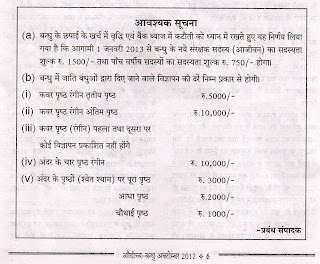 आवश्यक सूचना
(a) बन्धु के छपाई के खर्च में वृद्धि एवं बैंक ब्याज में कटौती को ध्यान में रखते हुए यह निर्णय लिया
गया है कि आगामी 1 जनवरी 2013 से बन्धु के नये संरक्षक सदस्य (आजीवन) का सदस्यता
शुल्क रु. 1500/- तथा पाँच वर्षीय सदस्यों का सदस्यता शुल्क रु. 750/- होगा।
(b) बन्धु में जाति बंधुओं द्वारा दिए जाने वाले विज्ञापन की दरें निम्न प्रकार से होगी।
(i) कवर पृष्ठ रंगीन तृतीय पृष्ठ रु.5000/-
(ii) कवर पृष्ठ रंगीन अंतिम पृष्ठ रु.10,000/-
(iii) कवर पृष्ठ (रंगीन) पहला तथा दूसरा पर
कोई विज्ञापन प्रकाशित नहीं होंगे
(iv) अंदर के चार पृष्ठ रंगीन रु. 10,000/-
(v) अंदर के पृष्ठों (श्वेत श्याम) पर पूरा पृष्ठ रु. 3000/-
आधा पृष्ठ रु.2000/-
चौथाई पृष्ठ रु. 1000/-
-प्रबंध संपादक
औदीच्य-बन्धु अक्टोम्बर 2012 ❖ 6